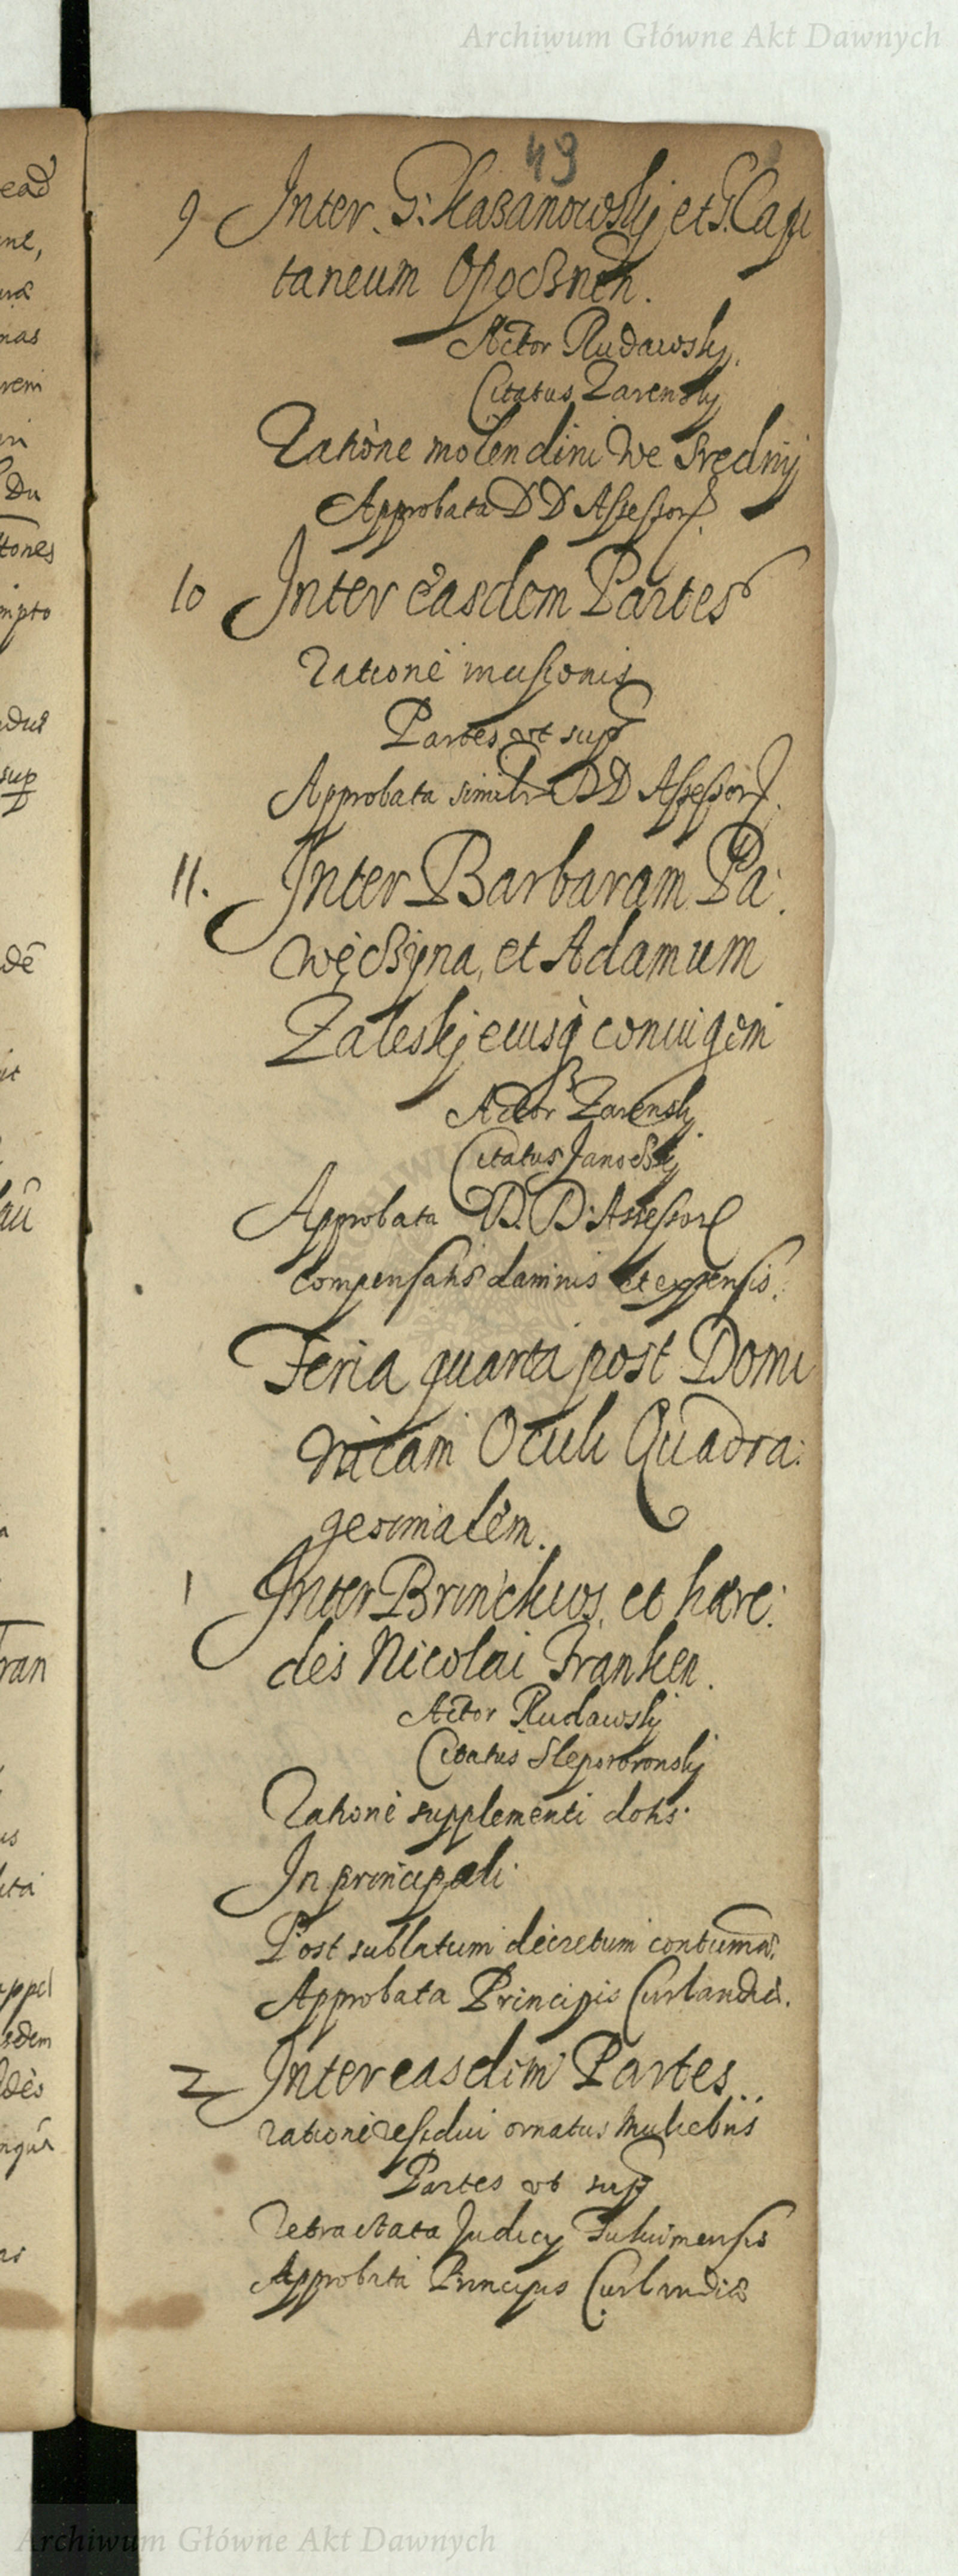 Archiwum Główne Akt Dawnych
49
9 Inter G: Kazanowskj et G. Capi
taneum Opocznen.
Actor Rudawskj.
Citatus Zarenskj
Ratione molendini We Srednij
Approbata DD Assessor
10 Inter easdem Partes
ratione
Partes vt sup
Approbata similr DD Assessor.
11. Inter Barbaram Pa:
węczÿna, et Adamum
Zaleskj eiusq coniugem
Actor Zarenskj
Citatus Janoczkj
Approbata D. D. Assessor
compensatis damnis et expensis.
Feria quarta post Domi
nicam Oculi Quadra:
gesimalem.
1 Inter Brinckios, et hære:
des Nicolai Franken.
Actor Rudawskj
Citatus
Ratione supplementi dotis.
In principali.
Post sublatum decretum contumac.
Approbata Principis Curlandiæ.
2 Inter easdem Partes..
ratione residui ornatus muliebris
Partes vt sup
Retractata Judicy Tukumensis
Approbata Principis Curlandiæ
ead
ne,
mas
Du
tones
mpto
sup
dē
ran
appel
dem
Archiwum Główne Akt Dawnych